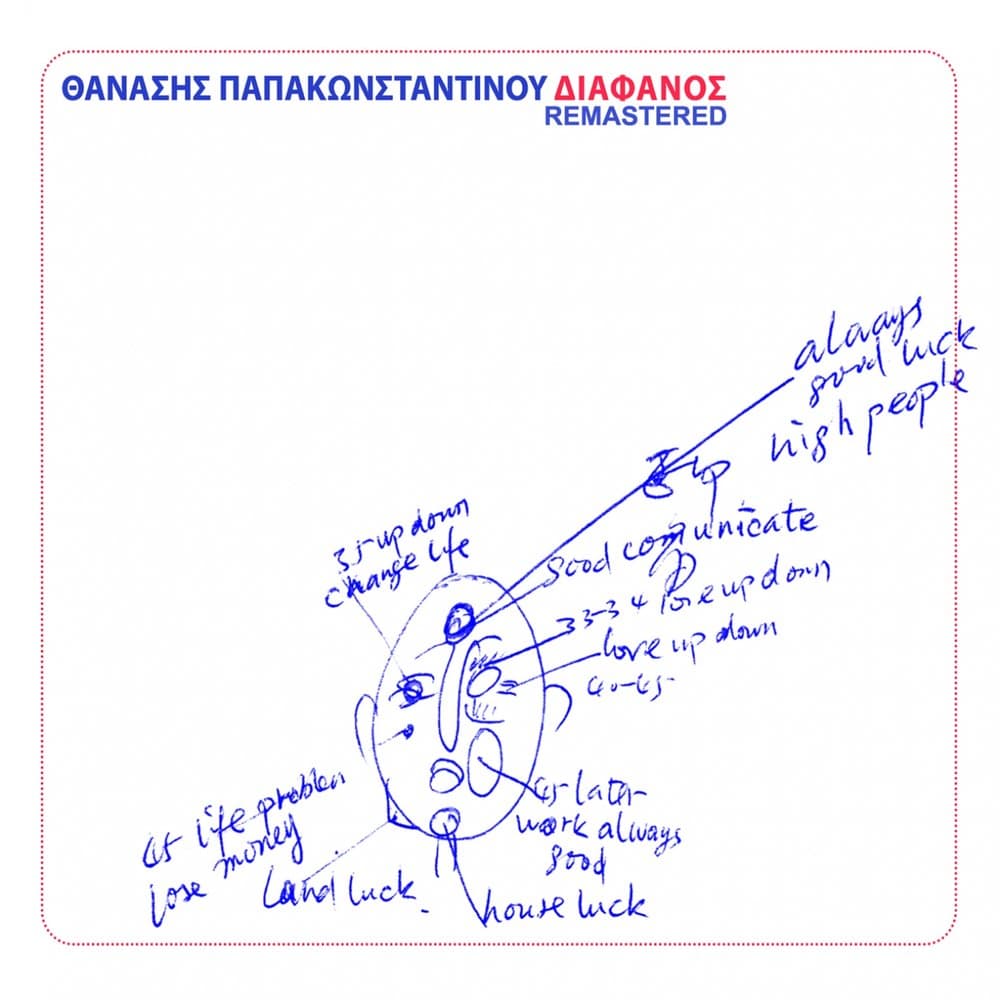 ΘΑΝΑΣΗΣ ΠΑΠΑΚΩΝΣΤΑΝΤΙΝΟΥ ΔΙΑΦΑΝΟΣ
REMASTERED
always
good luck
high people
up
good comunicate
35-up down
change life
33-34 lose up down
love up down
40-45-
45 life problem
lose money
Land luck.
45-later
work always
good
house luck